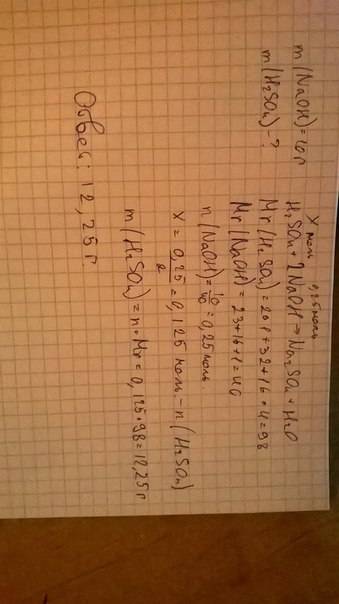 m(NaOH)=10г
m(H₂SO₄)-?
x моль 0,25моль
H₂SO₄ + 2NaOH → Na₂SO₄ + H₂O
Mr(H₂SO₄) = 2·1+32+16·4=98
Mr(NaOH) = 23+16+1=40
n(NaOH)=10/40=0,25 моль.
x = 0,25/2 = 0,125 моль. - n(H₂SO₄)
m(H₂SO₄) = n·Mr = 0,125·98 = 12,25 г
Ответ: 12,25 г.